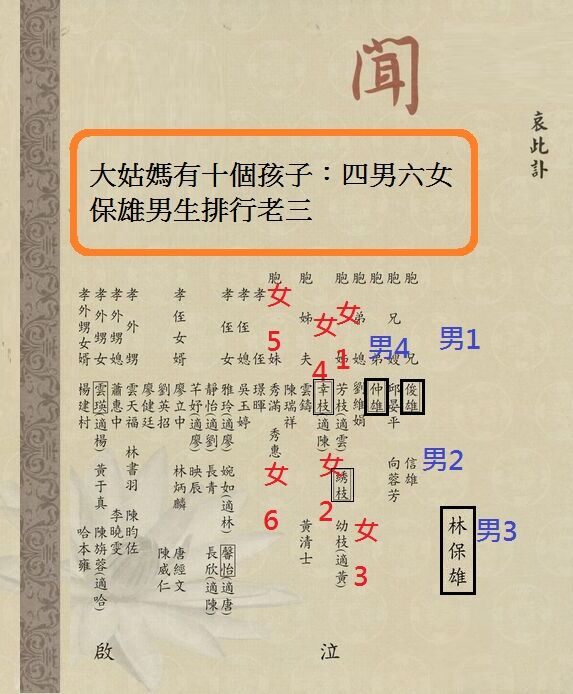 聞
哀此訃
大姑媽有十個孩子：四男六女
保雄男生排行老三
胞兄 俊雄 信雄
男1
男2
胞兄嫂 邱晏平 向蓉芳
胞弟 仲雄
男4
林保雄
男3
胞弟媳 劉維娟
胞姊 芳枝(適雲) 綉枝 幼枝(適黃)
女1
女2
女3
幸枝(適陳)
女4
胞姊夫 雲鑄 黃清士
陳瑞祥
胞妹 秀滿 秀惠
女5
女6
孝侄 璟暉
孝侄媳 吳玉婷
孝侄女 雅玲(適廖) 婉如(適林) 馨怡(適唐)
靜怡(適劉) 長青 長欣(適陳)
芊妤(適廖) 映辰
孝侄女婿 廖立中 林炳麟 唐經文
劉英招 陳威仁
廖健廷
孝外甥 雲天福 林書羽 陳昀佐
孝外甥媳 蕭惠中 李曉雯
孝外甥女 雲瑛(適楊) 黃于真 陳旃蓉(適哈)
孝外甥女婿 楊建村 哈本雍
泣
啟